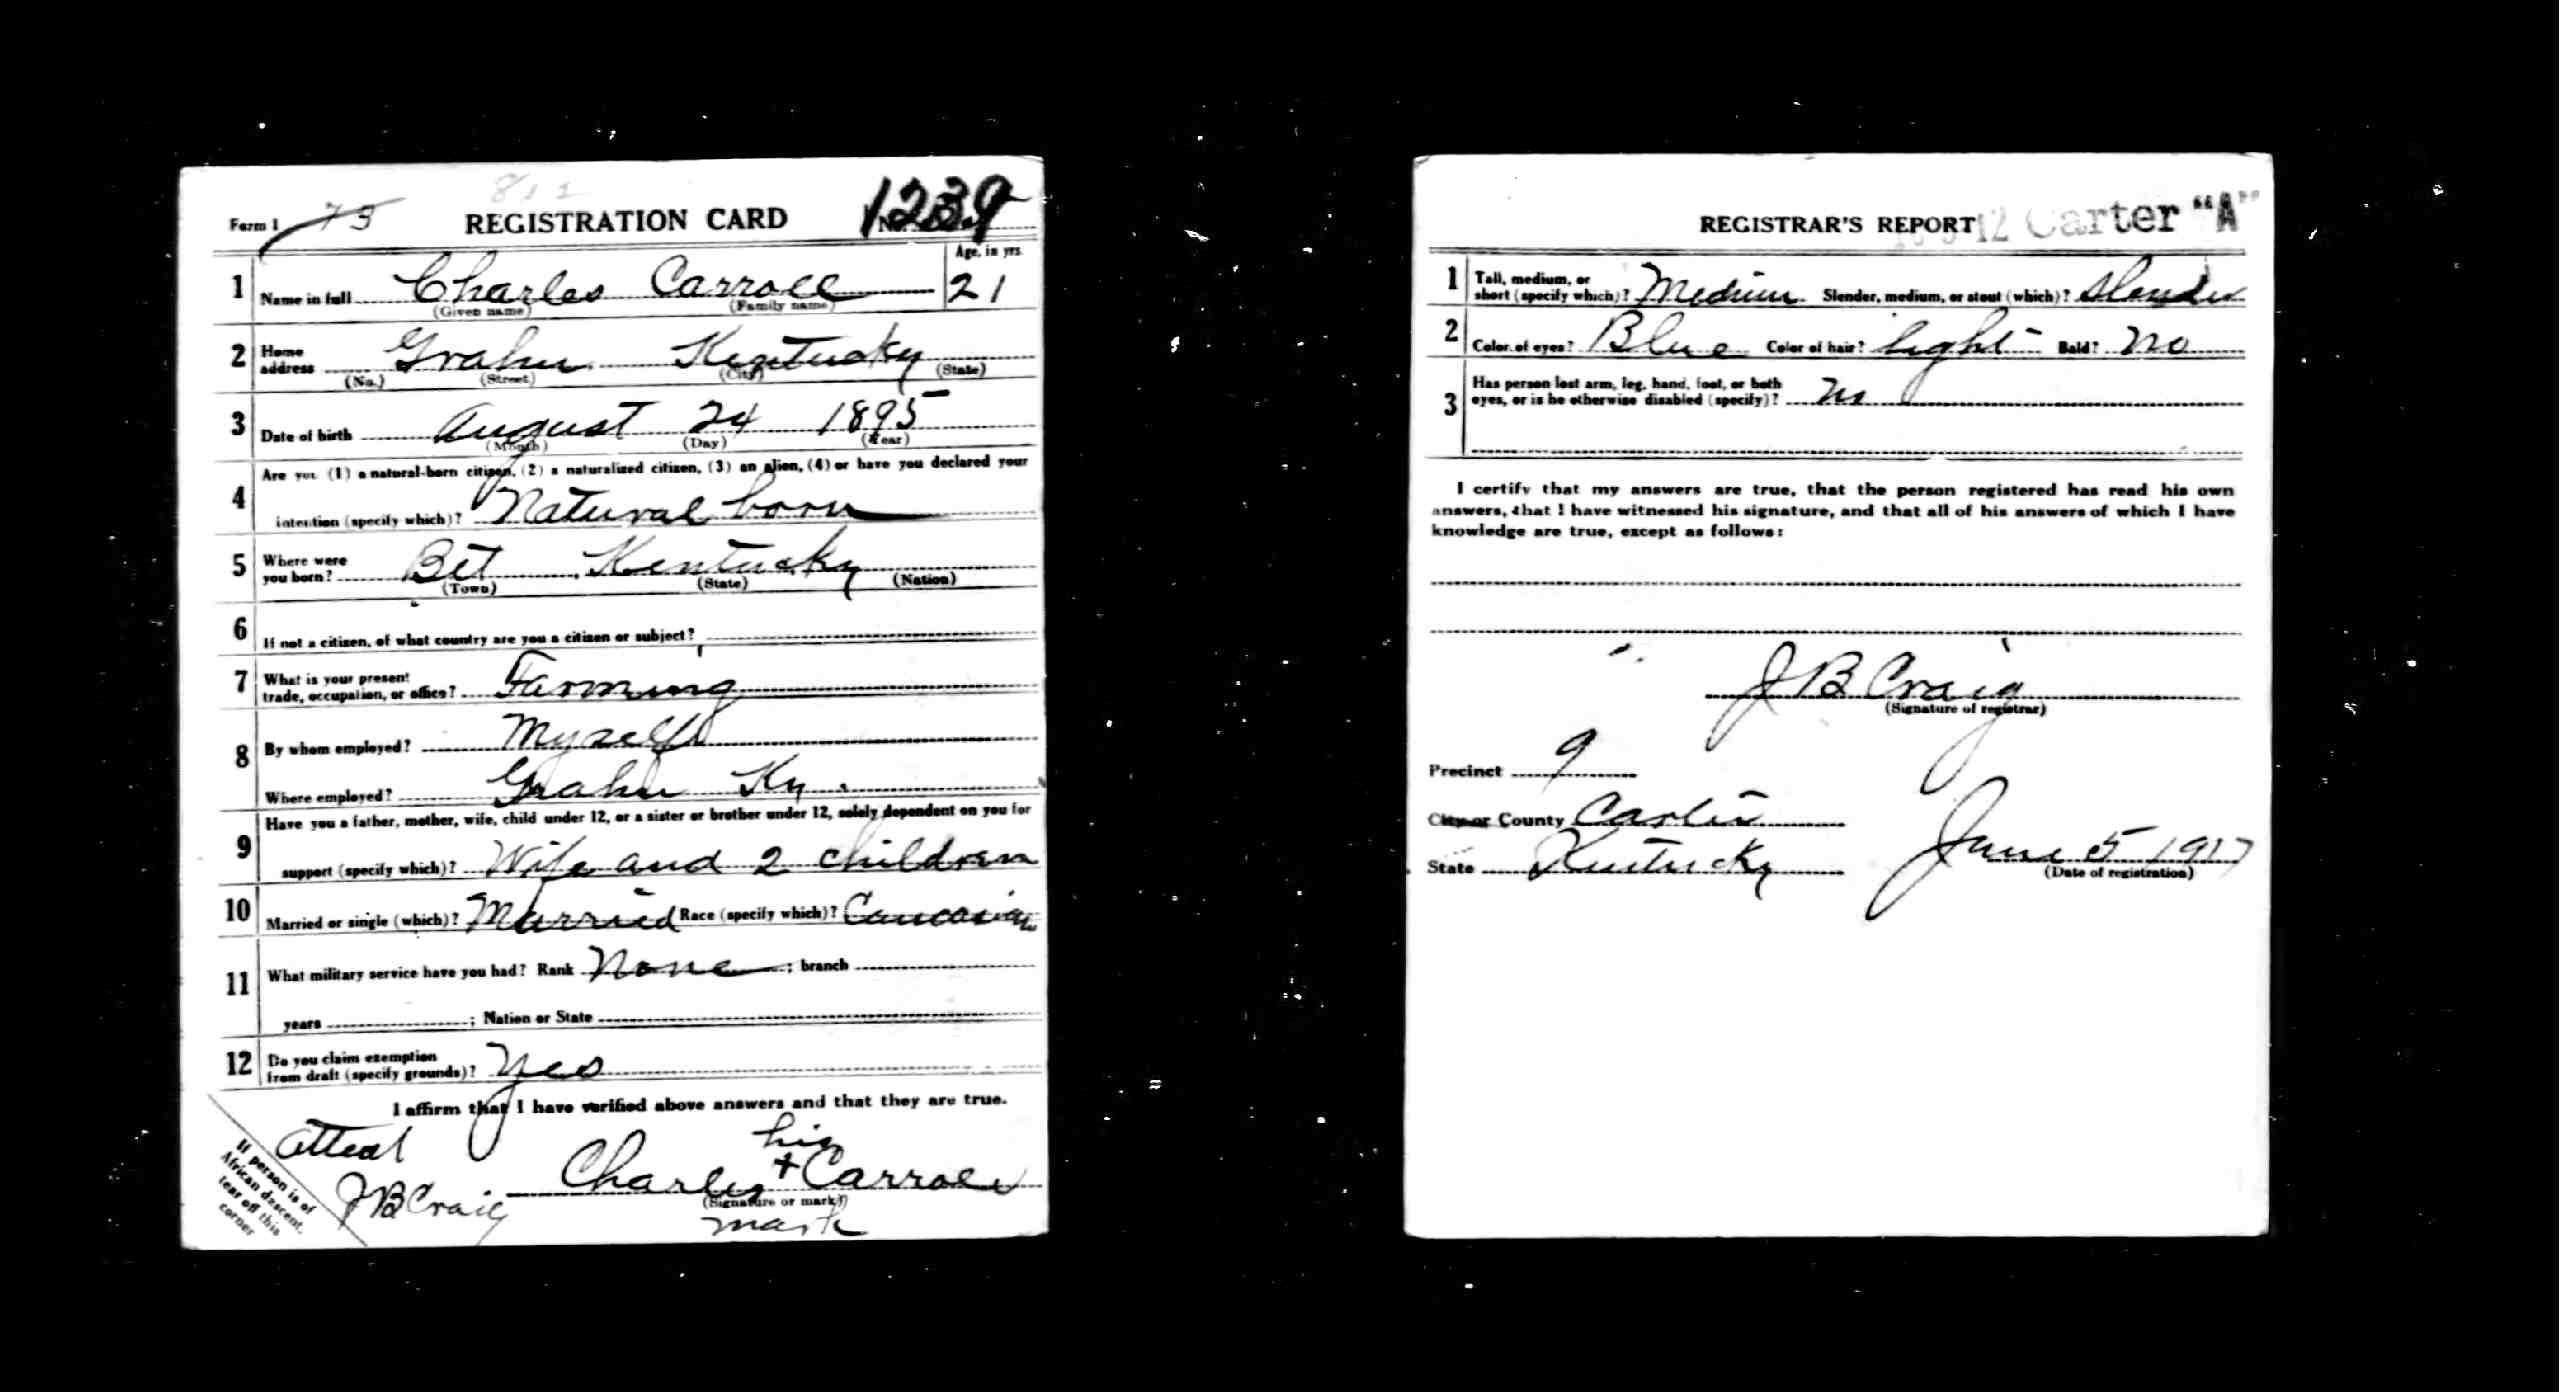 Form 1 73 REGISTRATION CARD No. 1239
Age, in yrs.
1 Name in full Charles Carroll 21
(Given name) (Family name)
2 Home address Grahn Kentucky
(No.) (Street) (City) (State)
3 Date of birth August 24 1895
(Month) (Day) (Year)
Are you (1) a natural-born citizen, (2) a naturalized citizen, (3) an alien, (4) or have you declared your
4 intention (specify which)? Natural born
5 Where were you born? Bet Kentucky
(Town) (State) (Nation)
6 If not a citizen, of what country are you a citizen or subject?
7 What is your present trade, occupation, or office? Farming
8 By whom employed? Myself
Where employed? Grahn Ky.
Have you a father, mother, wife, child under 12, or a sister or brother under 12, solely dependent on you for
9 support (specify which)? Wife and 2 children
10 Married or single (which)? Married Race (specify which)? Caucasian
11 What military service have you had? Rank None ; branch
years ; Nation or State
12 Do you claim exemption from draft (specify grounds)? Yes
I affirm that I have verified above answers and that they are true.
Attest his
J B Craig Charles + Carroll
(Signature or mark)
mark
If person is of
African descent,
tear off this
corner
REGISTRAR'S REPORT 12 Carter "A"
1 Tall, medium, or short (specify which)? Medium Slender, medium, or stout (which)? Slender
2 Color of eyes? Blue Color of hair? Light Bald? No
3 Has person lost arm, leg, hand, foot, or both eyes, or is he otherwise disabled (specify)? No
I certify that my answers are true, that the person registered has read his own
answers, that I have witnessed his signature, and that all of his answers of which I have
knowledge are true, except as follows:
J B Craig
(Signature of registrar)
Precinct 9
City or County Carter
State Kentucky June 5 1917
(Date of registration)